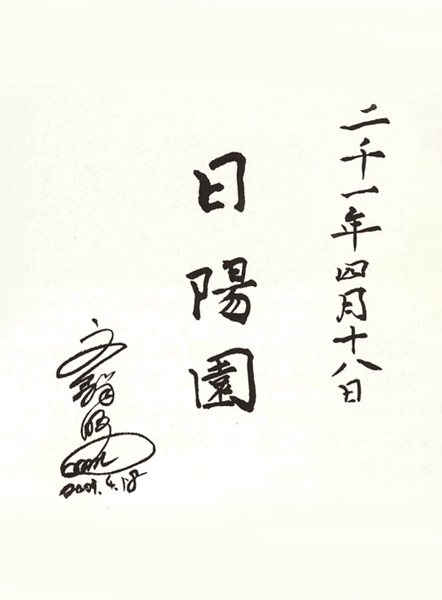 二千一年四月十八日
日陽園
文鮮明
2001. 4. 18